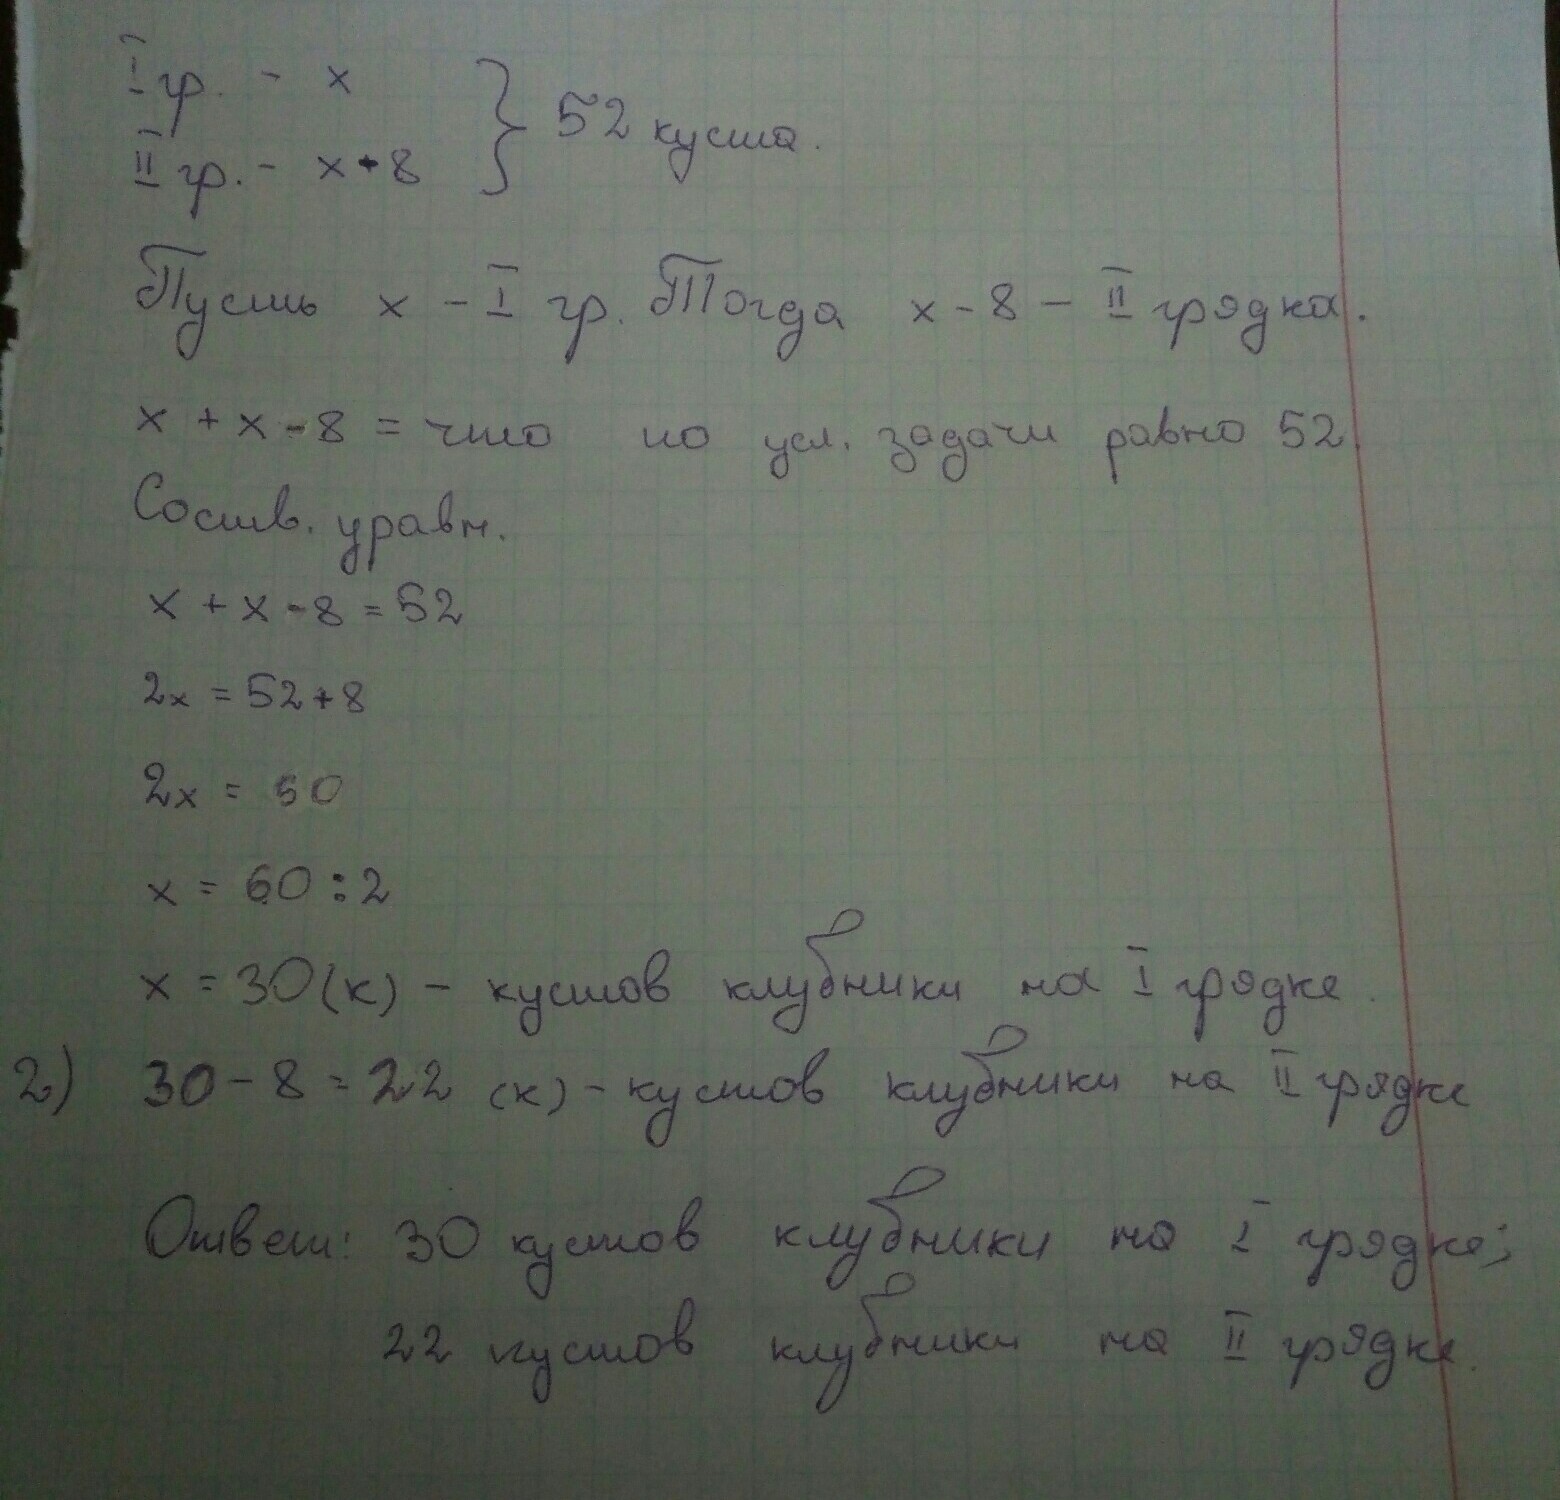 I гр. - x
II гр. - x - 8 } 52 куста.
Пусть x - I гр. Тогда x - 8 - II грядка.
x + x - 8 = что по усл. задачи равно 52.
Соств. уравн.
x + x - 8 = 52
2x = 52 + 8
2x = 60
x = 60 : 2
x = 30 (к) - кустов клубники на I грядке.
2) 30 - 8 = 22 (к) - кустов клубники на II грядке
Ответ: 30 кустов клубники на I грядке;
22 кустов клубники на II грядке.